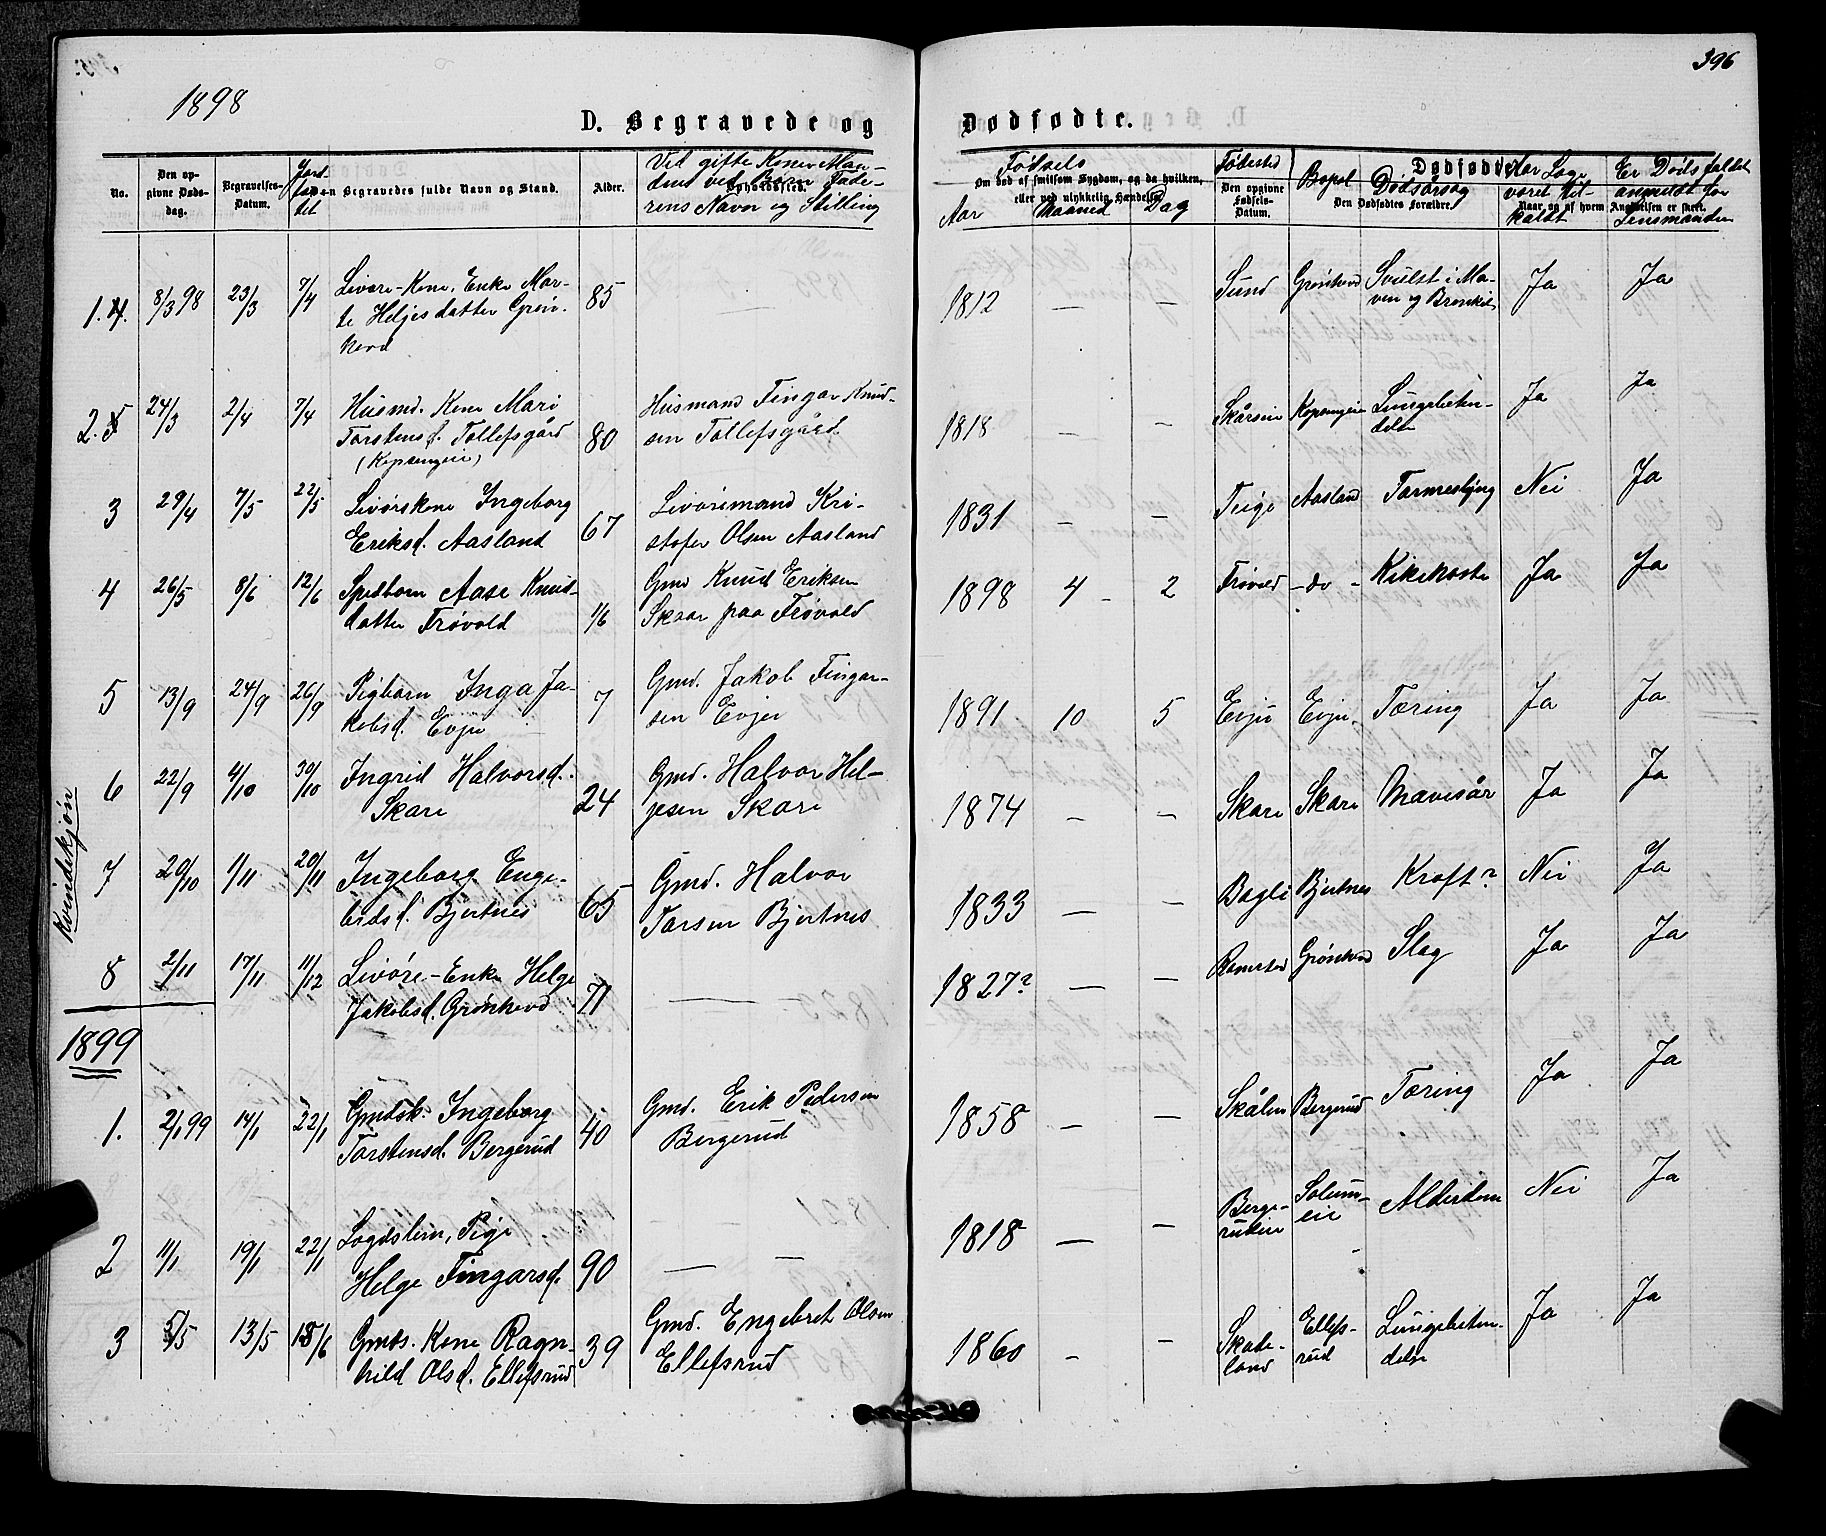 396
1898
D. Begravede og Dødfødte.
No.
Den opgivne Dødsdag.
Begravelses-Datum.
Jordfæstet
Den Begravedes fulde Navn og Stand.
Alder.
Opholdssted.
Ved gifte Koner Mandens ved Børn Faderens Navn og Stilling
Om død af smitsom Sygdom, og da hvilken, eller ved ulykkelig Hændelse.
Fødsels
Aar Maaned Dag
Fødested
Den opgivne Fødsels-Datum.
Bopel
Dødfødte.
Dødsårsag
Den Dødfødtes Forældre.
Har Læge været tilkaldt
Naar, og af hvem Angivelsen er skeet.
Er Dødsfaldet anmeldt for Lensmanden
Kvindekjøn
1. 4. 8/3 98 23/3 7/4 Livøre-Kone, Enke Marte Helgesdatter Grønhovd 85 — 1812 — — Sund Grønhovd Svulst i Maven og Bronkit. Ja Ja
2. 5 24/3 2/4 7/4 Husmd. Kone Mari Torstensd. Tollefsgård (Kopsengeie) 80 Husmand Fingar Knudsen Tollefsgård. 1818 — — Skårseie Kopsengeie Lungebetendelse Ja Ja
3 29/4 7/5 22/5 Livørskone Ingeborg Eriksd. Aasland 67 Livøremand Kristofer Olsen Aasland 1831 — — Teige Aasland Tarmeslyng Nei Ja
4 26/5 8/6 12/6 Spedbarn Aase Knudsdatter Frøvold 1/6 Gmd Knud Eriksen Skaar paa Frøvold 1898 4 - 2 Frøvold - do - Kikehoste Ja Ja
5 13/9 24/9 26/9 Pigbarn Inga Jakobsd. Evju 7 Gmd. Jakob Fingarsen Evjen 1891 10 5 Evju Evju. Tæring Ja Ja
6 22/9 4/10 30/10 Ingrid Halvorsd. Skare 24 Gmd. Halvor Helgesen Skare 1874 — — Skare Skare Mavesår Ja Ja
7 20/10 1/11 20/11 Ingeborg Engebrdsd. Bjertnes 65 Gmd. Halvor Torsen Bjertnes 1833 — — Bagli Bjertnes Kræft? Nei Ja
8 2/11 17/11 11/12 Livøre-Enke Helge Jakobsd. Grønhovd 71 — 1827? — — Grønhovd Slag Ja Ja
1899
1. 2/1 99 14/1 22/1 Gmdsk. Ingeborg Torstensd. Bergerud 40 Gmd. Erik Pedersen Bergerud 1858 — — Skålen Bergerud Tæring Ja Ja
2 11/1 19/1 22/1 Lægdslem, Pige Helge Fingarsd. 90 — — 1818 — — Bergerudeie Solumseie Alderdom Nei Ja
3 5/5 13/5 18/6 Gmds. Kone Ragnhild Olsd. Ellefsrud 39 Gmd. Engebret Olsen Ellefsrud 1860 - — Skadeland Ellefsrud Lungebetendelse Ja Ja